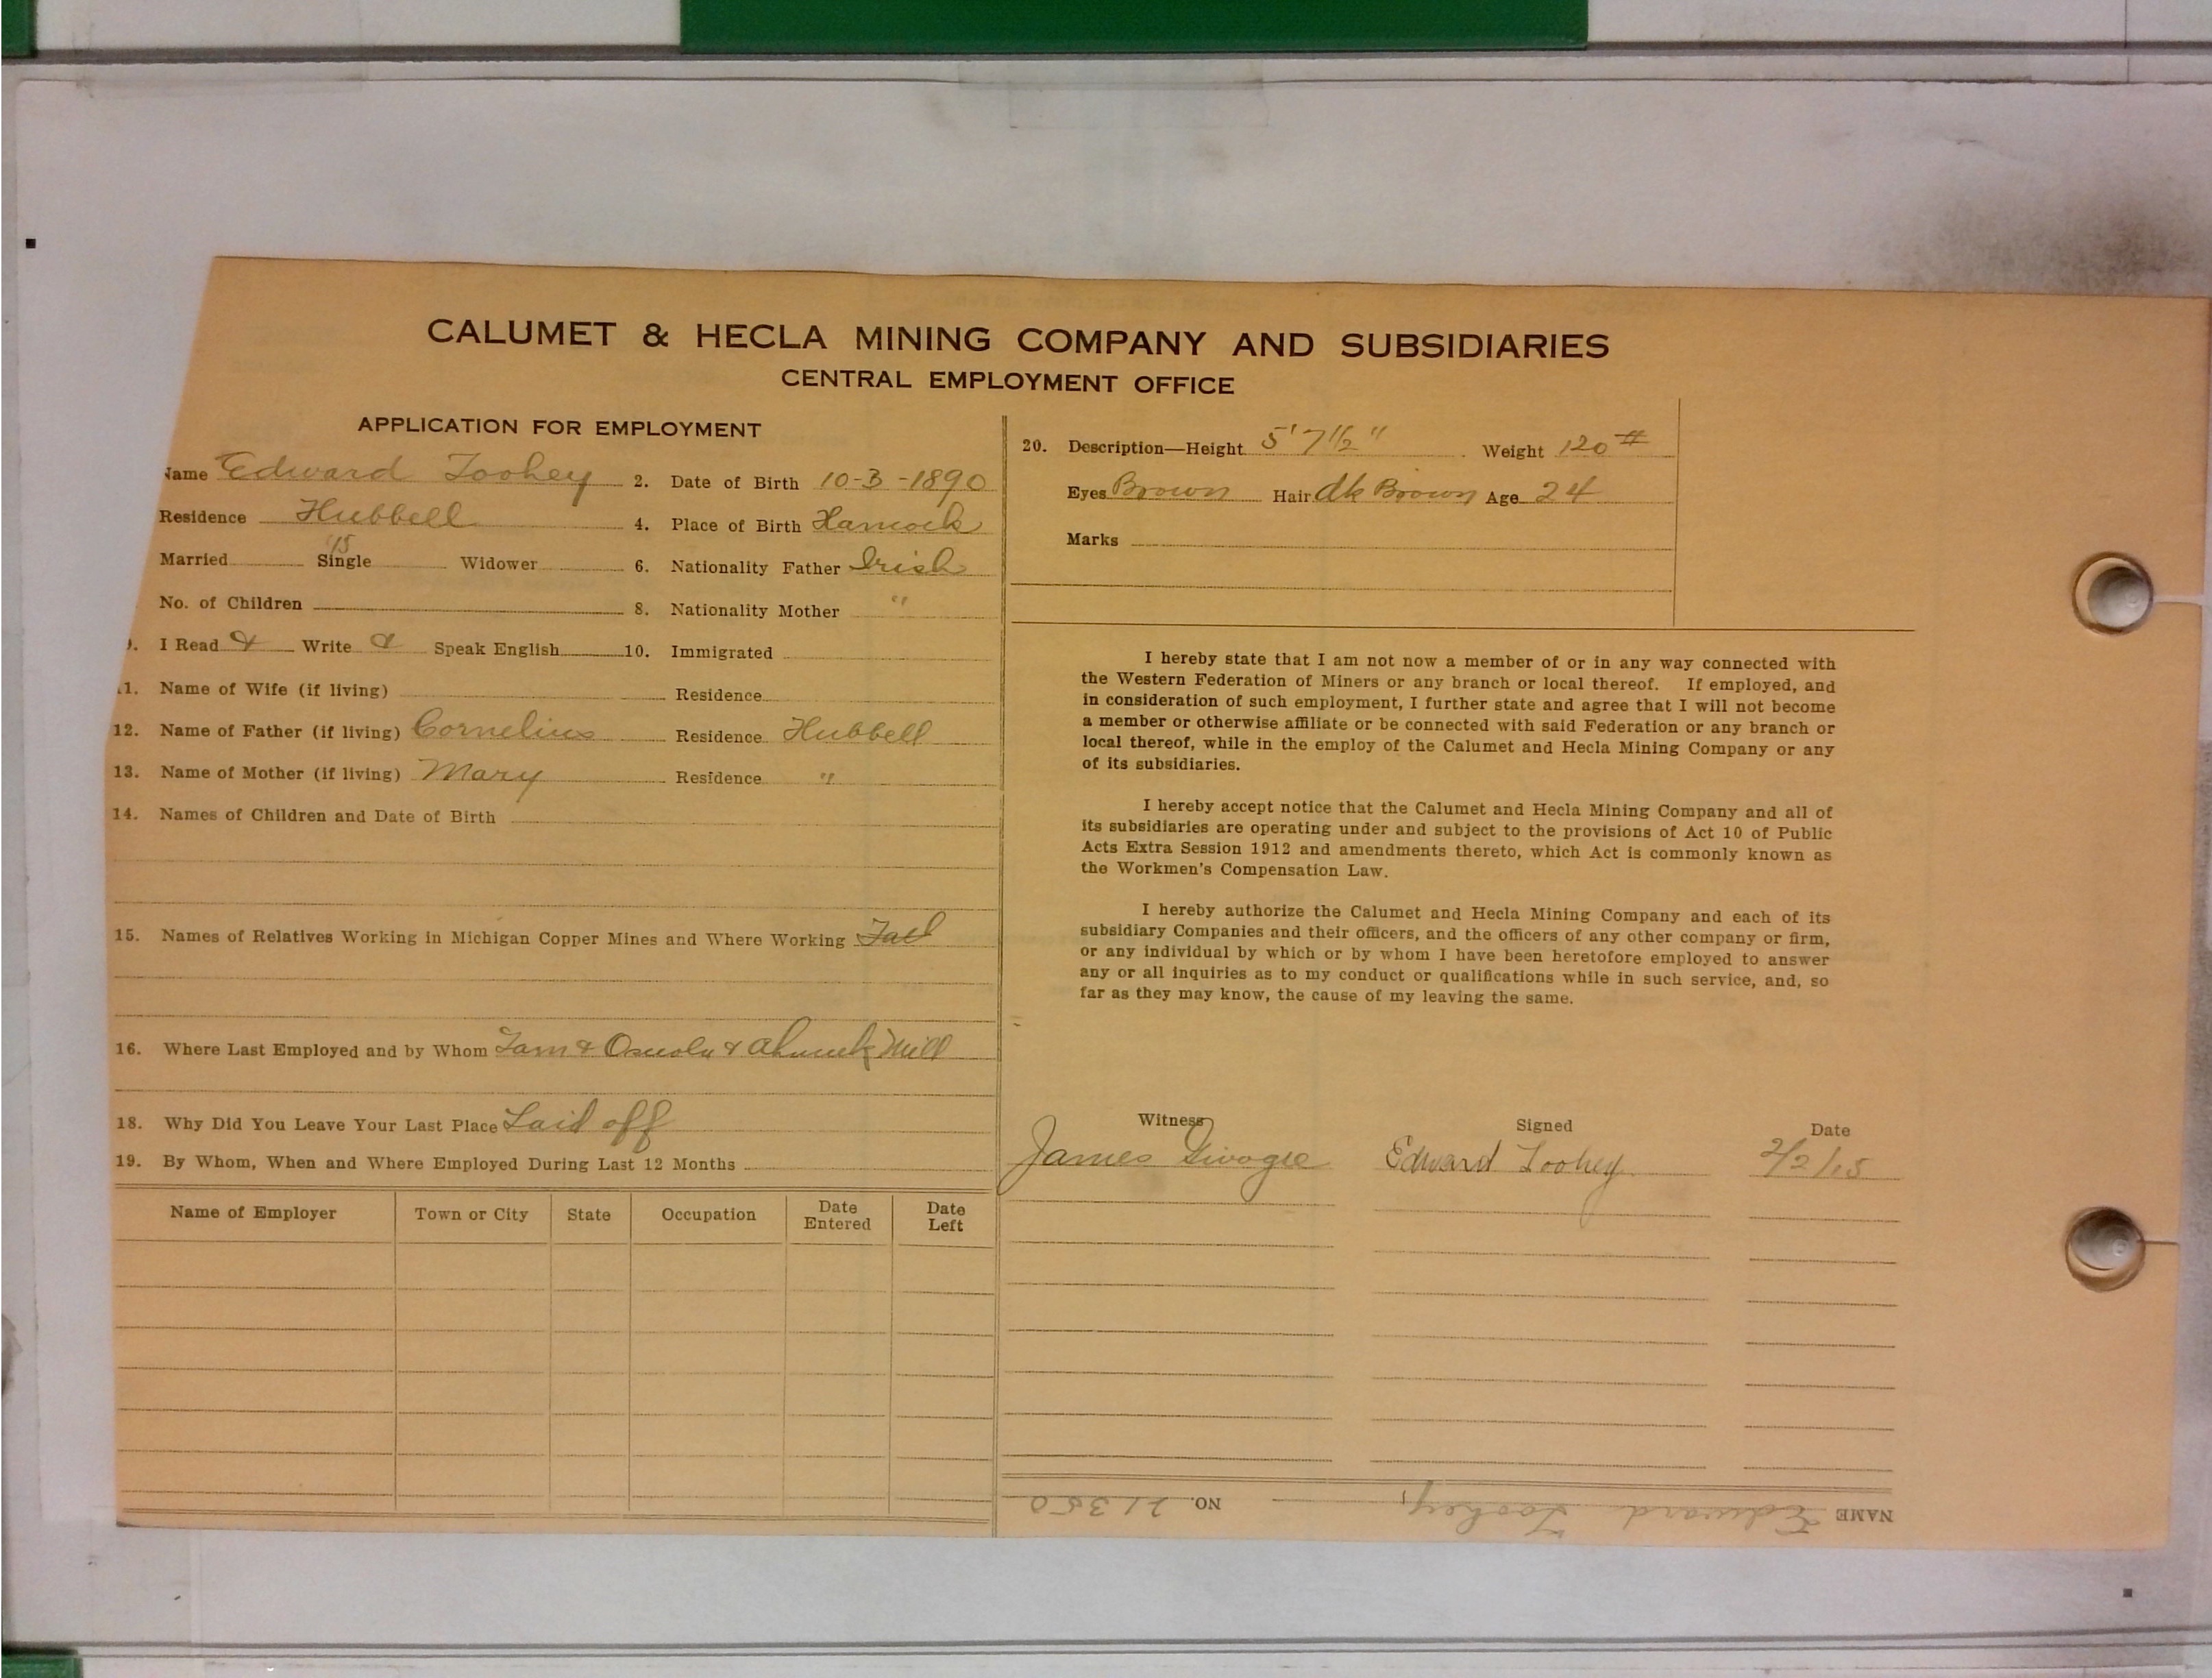 CALUMET & HECLA MINING COMPANY AND SUBSIDIARIES
CENTRAL EMPLOYMENT OFFICE
APPLICATION FOR EMPLOYMENT
Name Edward Toohey 2. Date of Birth 10-3-1890
Residence Hubbell 4. Place of Birth Hancock
'15
Married Single Widower 6. Nationality Father Irish
No. of Children 8. Nationality Mother "
9. I Read & Write & Speak English 10. Immigrated
11. Name of Wife (if living) Residence
12. Name of Father (if living) Cornelius Residence Hubbell
13. Name of Mother (if living) Mary Residence "
14. Names of Children and Date of Birth
15. Names of Relatives Working in Michigan Copper Mines and Where Working
16. Where Last Employed and by Whom Tam & Osceola & Ahmeek Mill
18. Why Did You Leave Your Last Place Laid off
19. By Whom, When and Where Employed During Last 12 Months
Name of Employer Town or City State Occupation Date Entered Date Left
20. Description—Height 5' 7 1/2" Weight 120 #
Eyes Brown Hair dk Brown Age 24
Marks
I hereby state that I am not now a member of or in any way connected with
the Western Federation of Miners or any branch or local thereof. If employed, and
in consideration of such employment, I further state and agree that I will not become
a member or otherwise affiliate or be connected with said Federation or any branch or
local thereof, while in the employ of the Calumet and Hecla Mining Company or any
of its subsidiaries.
I hereby accept notice that the Calumet and Hecla Mining Company and all of
its subsidiaries are operating under and subject to the provisions of Act 10 of Public
Acts Extra Session 1912 and amendments thereto, which Act is commonly known as
the Workmen's Compensation Law.
I hereby authorize the Calumet and Hecla Mining Company and each of its
subsidiary Companies and their officers, and the officers of any other company or firm,
or any individual by which or by whom I have been heretofore employed to answer
any or all inquiries as to my conduct or qualifications while in such service, and, so
far as they may know, the cause of my leaving the same.
Witness Signed Date
James Edward Toohey 2/2/15
NAME Edward Toohey, NO. 21350